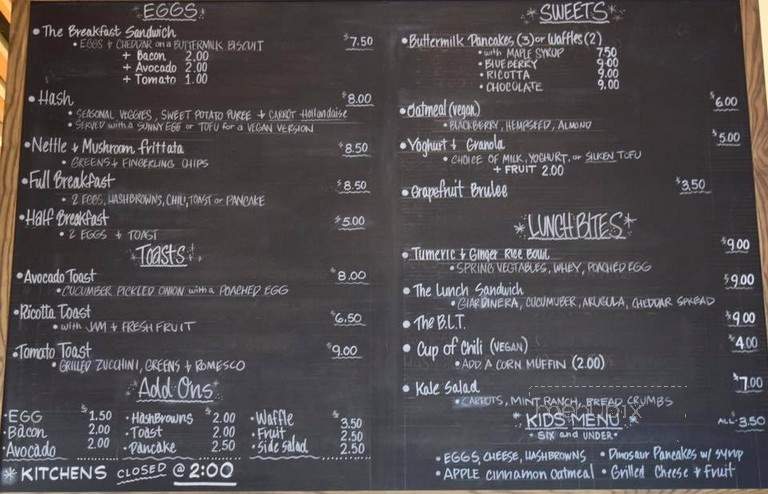 EGGS
• The Breakfast Sandwich $7.50
• EGGS + CHEDDAR on a BUTTERMILK BISCUIT
+ Bacon 2.00
+ Avocado 2.00
+ Tomato 1.00
• Hash $8.00
• SEASONAL VEGGIES, SWEET POTATO PUREE + CARROT Hollandaise
• SERVED with a SUNNY EGG or TOFU for a VEGAN VERSION
• Nettle + Mushroom frittata $8.50
• GREENS + FINGERLING CHIPS
• Full Breakfast $8.50
• 2 EGGS, HASHBROWNS, CHILI, TOAST or PANCAKE
• Half Breakfast $5.00
• 2 EGGS + TOAST
Toasts
• Avocado Toast $8.00
• CUCUMBER PICKLED ONION with a POACHED EGG
• Ricotta Toast $6.50
• with JAM + FRESH FRUIT
• Tomato Toast $9.00
• GRILLED ZUCCHINI, GREENS + ROMESCO
Add Ons
• EGG $1.50
• Bacon 2.00
• Avocado 2.00
• HashBrowns $2.00
• Toast 2.00
• Pancake 2.50
• Waffle $3.50
• Fruit 2.50
• Side Salad 2.50
* KITCHENS CLOSED @ 2:00
SWEETS
• Buttermilk Pancakes (3) or Waffles (2)
• with MAPLE SYRUP 7.50
• BLUEBERRY 9.00
• RICOTTA 9.00
• CHOCOLATE 9.00
• Oatmeal (vegan) $6.00
• BLACKBERRY, HEMPSEED, ALMOND
• Yoghurt + Granola $5.00
• CHOICE OF MILK, YOGHURT, or SILKEN TOFU
+ FRUIT 2.00
• Grapefruit Brulee $3.50
LUNCH BITES
• Tumeric + Ginger Rice Bowl $9.00
• SPRING VEGTABLES, WHEY, POACHED EGG
• The Lunch Sandwich $9.00
• GIARDINERA, CUCUMUBER, ARUGULA, CHEDDAR SPREAD
• The B.L.T. $9.00
• Cup of Chili (VEGAN) $4.00
• ADD A CORN MUFFIN (2.00)
• Kale Salad $7.00
• CARROTS, MINT RANCH, BREAD CRUMBS
menupix
KIDS MENU ALL $3.50
• SIX and UNDER •
• EGGS, CHEESE, HASHBROWNS
• Dinosaur Pancakes w/ syrup
• APPLE cinnamon Oatmeal
• Grilled Cheese + Fruit